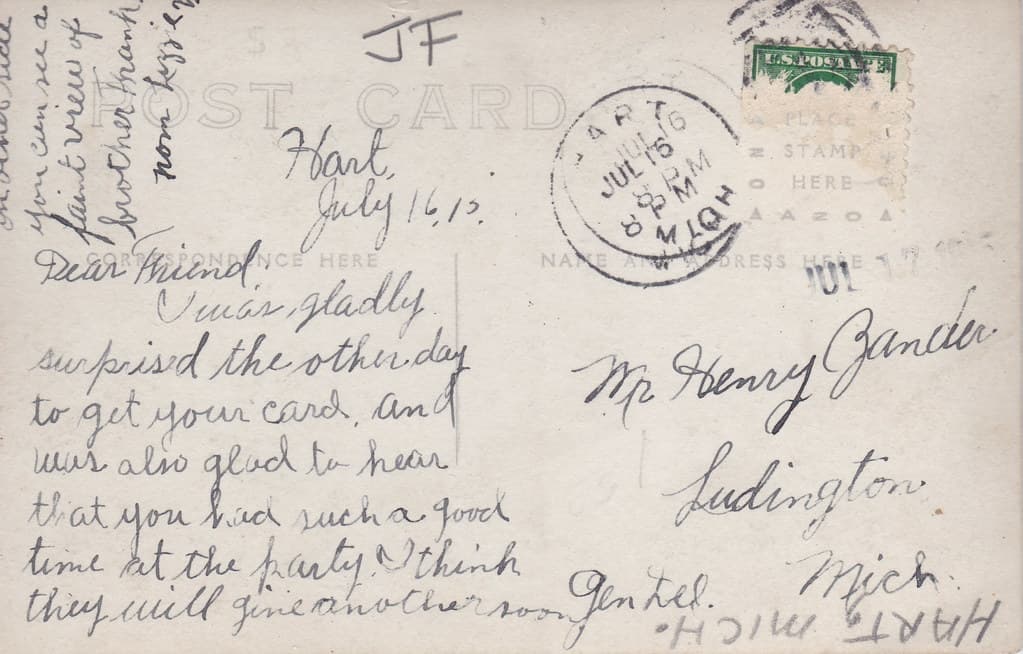 on other side
you can see a
faint view of
brother Frank.
from Lizzie
JF
POST CARD
U.S. POSTAGE
HART
JUL 16
8 PM
MICH
PLACE
STAMP
HERE
AZO
Hart,
July 16, 15.
CORRESPONDENCE HERE
NAME AND ADDRESS HERE
JUL 17
Dear Friend.
I was gladly
surprised the other day
to get your card, and
was also glad to hear
that you had such a good
time at the party. I think
they will give another soon
Mr Henry Zander
Ludington
Mich.
Gen Del.
HART, MICH.